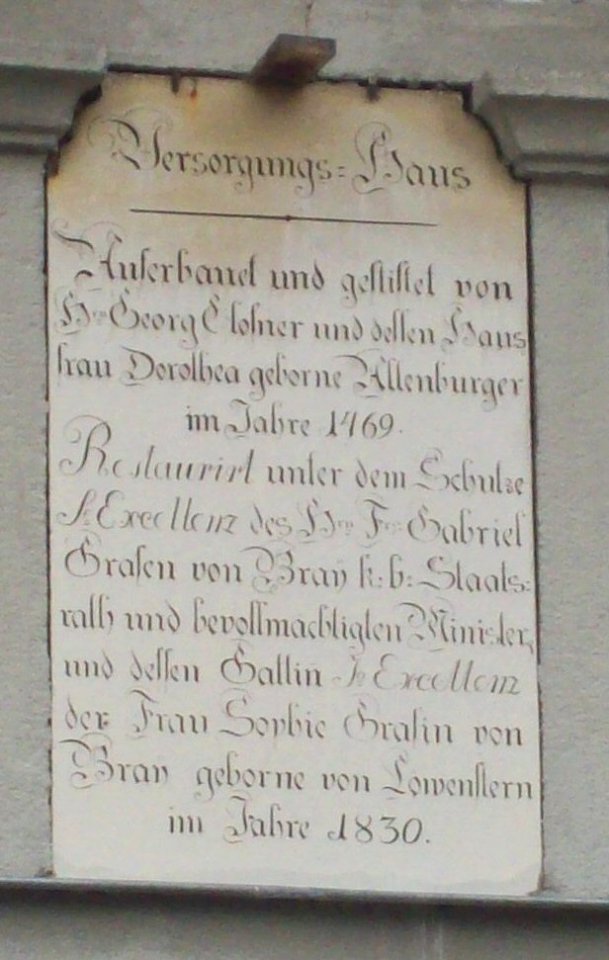 Versorgungs=Haus
Auferbauet und gestiftet von
Hr. Georg Closner und dessen Haus
frau Dorothea geborne Altenburger
im Jahre 1469.
Restaurirt unter dem Schutze
Sr Excellenz des Hrn Frz Gabriel
Grafen von Bray k: b: Staats=
rath und bevollmächtigten Minister,
und dessen Gattin Ir Excellenz
der Frau Sophie Gräfin von
Bray geborne von Löwenstern
im Jahre 1830.